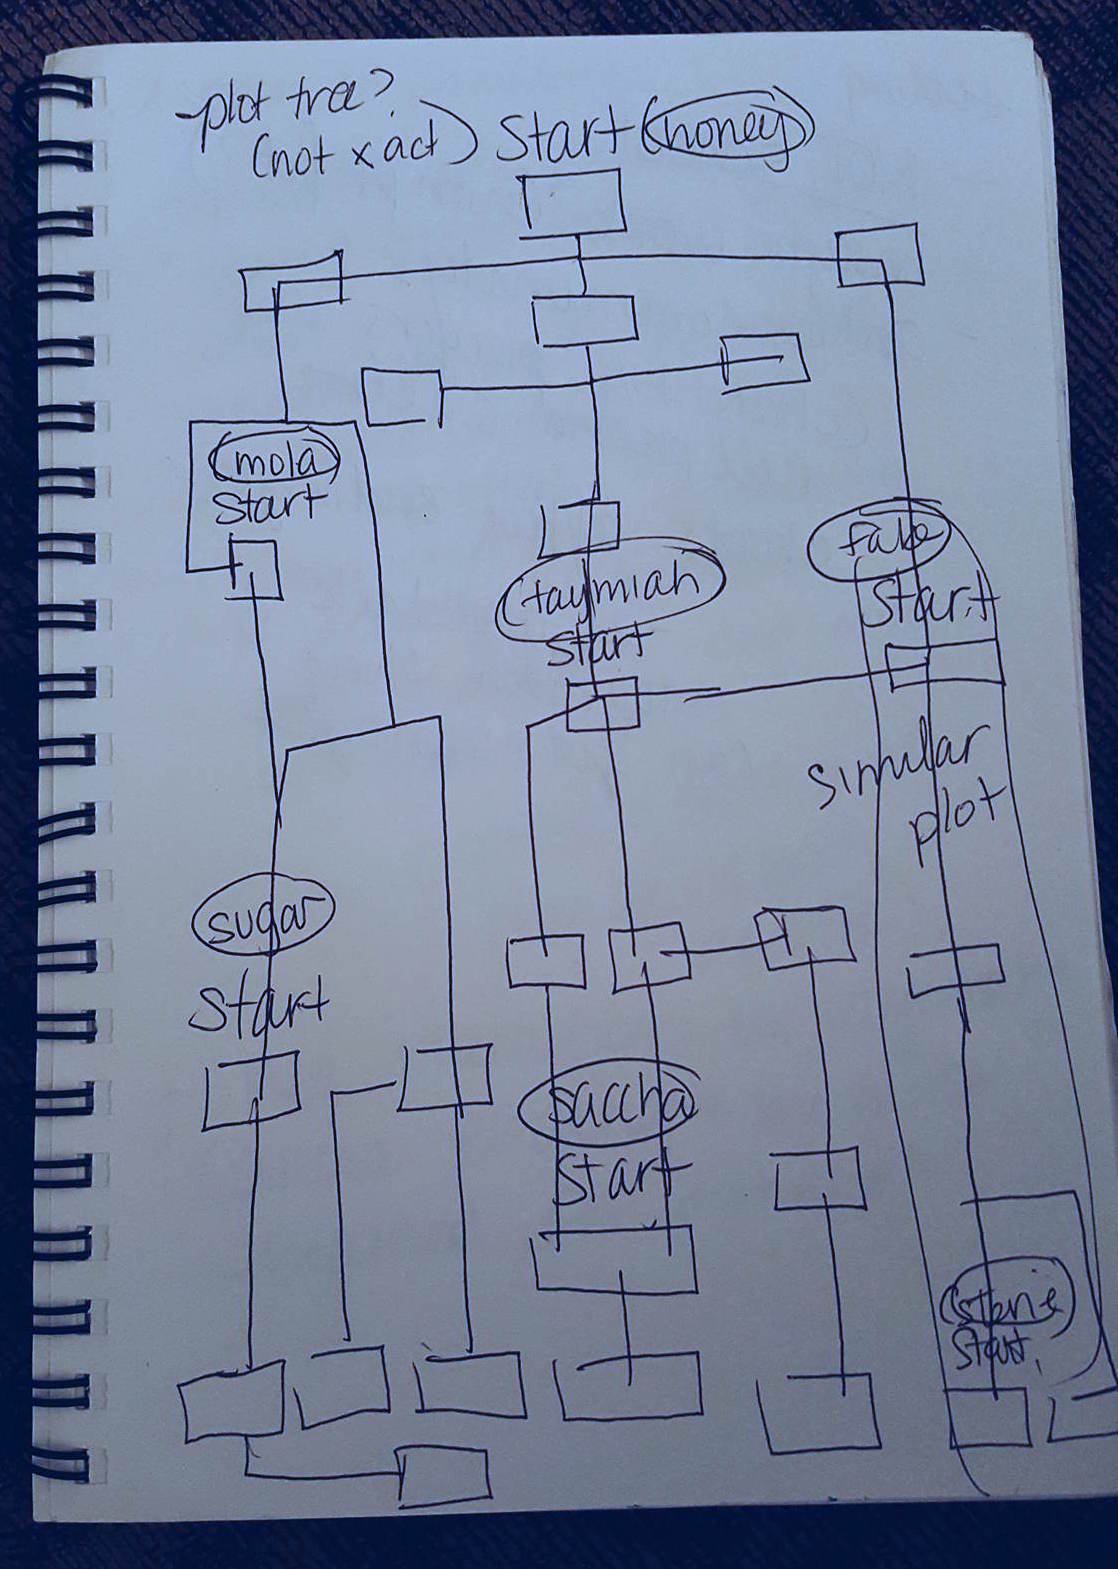 -plot tree?
(not xact) Start (honey)
(mola
start
(taymiah
start
fake
start
simular
plot
sugar
start
saccha
start
start